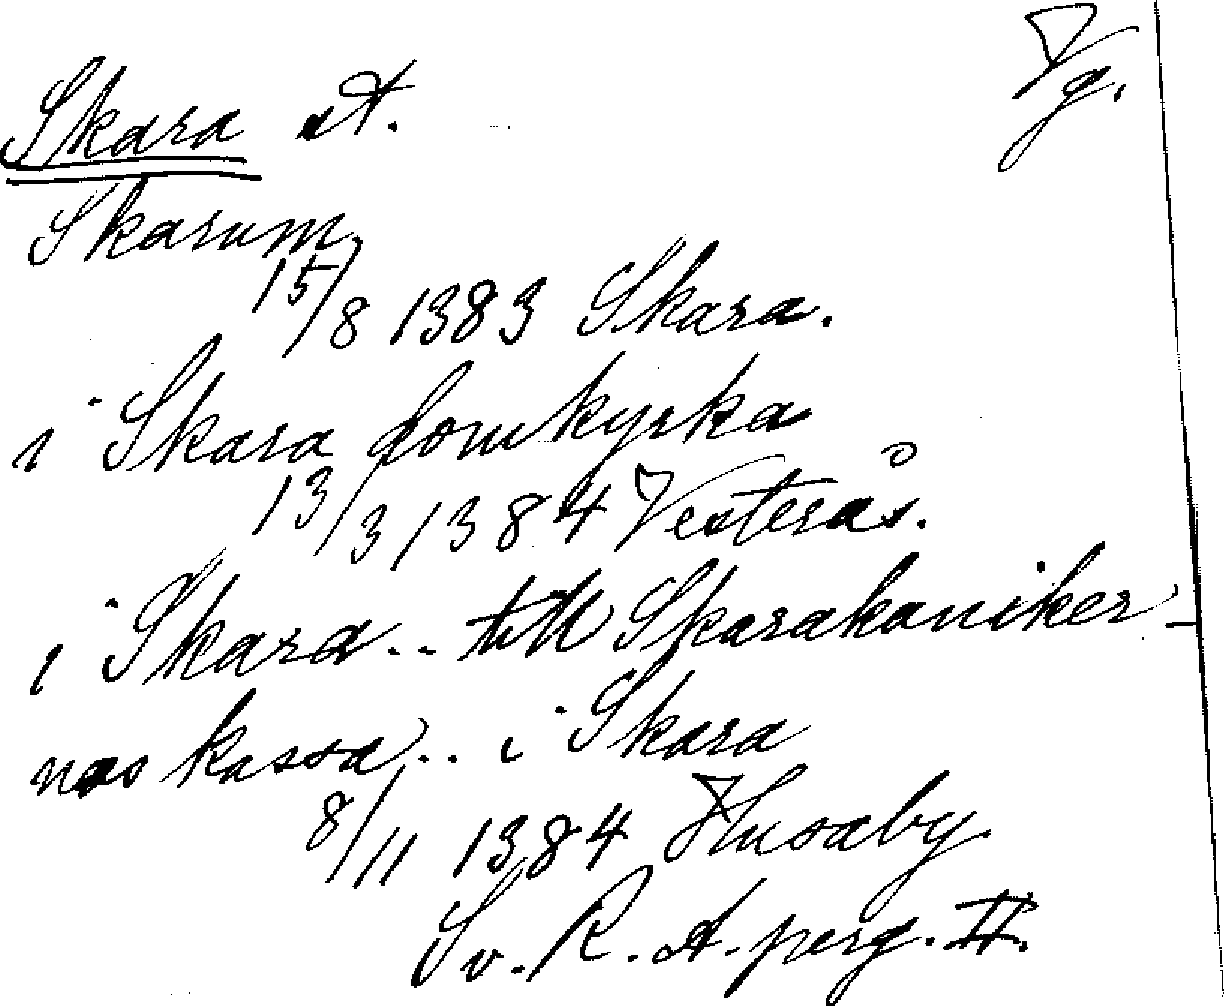 Vg.
Skara st.
Skarum
15/8 1383 Skara.
i Skara domkyrka
13/3 1384 Vesterås.
i Skara.. till Skarakaniker-
nas kassa.. i Skara
8/11 1384 Husaby
Sv. R. A. perg. II.